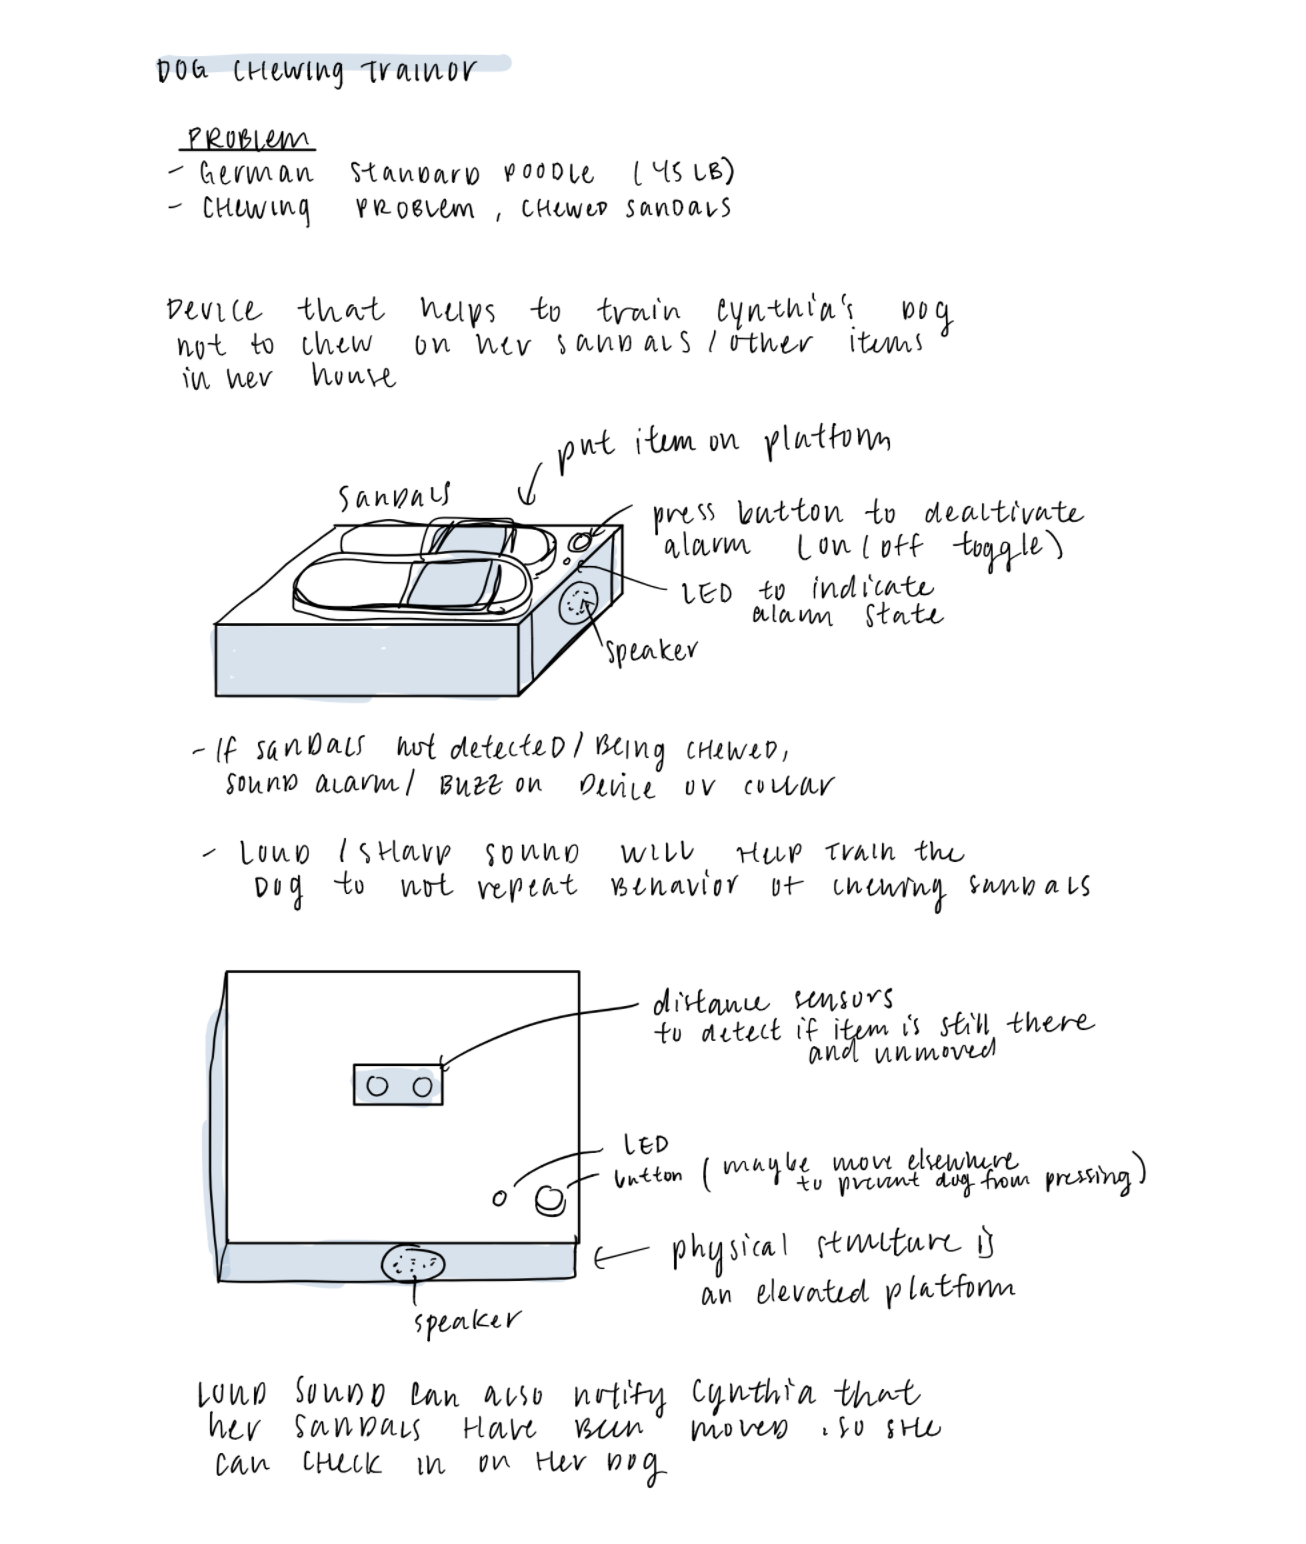 DOG CHEWING TRAINOR
PROBLEM
- GERMAN STANDARD POODLE (45 LB)
- CHEWING PROBLEM, CHEWED SANDALS
DEVICE that helps to train Cynthia's DOG
not to chew on her SANDALS / other items
in her house
put item on platform
SANDALS
press button to deactivate
alarm (on/off toggle)
LED to indicate
alarm state
speaker
- IF SANDALS not detected / BEING CHEWED,
SOUND ALARM / BUZZ on DEVICE or collar
- LOUD / SHARP SOUND WILL HELP TRAIN the
DOG to not repeat BEHAVIOR of chewing SANDALS
distance sensors
to detect if item is still there
and unmoved
LED
button (maybe move elsewhere
to prevent dog from pressing)
physical structure is
an elevated platform
speaker
LOUD SOUND can also notify Cynthia that
her SANDALS HAVE BEEN MOVED. SO SHE
can CHECK in on HER DOG